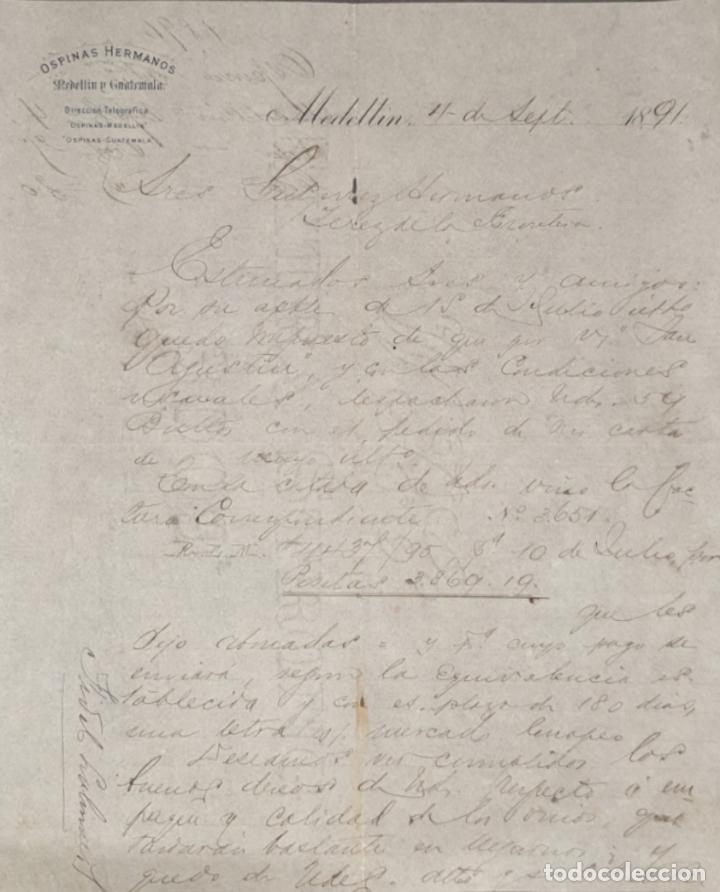 OSPINAS HERMANOS
Medellin y Guatemala.
Dirección Telegráfica
"OSPINAS-MEDELLIN"
"OSPINAS-GUATEMALA"
Medellin, 4 de Sept. 1891
Sres Gutierrez Hermanos
Jerez de la Frontera.
Estimados Sres y amigos:
Por su apble de 15 de Julio
quedo impuesto de que por San
Agustin", y con las Condiciones
despacharon Uds. 59
Bultos con el pedido de mi carta
de mayo ulto
Con la citada de Uds. vino la fac
tura Correspondiente No. 3651.
10 de Julio, por
Pesetas 3.869.19.
que les
dejo abonadas = y cuyo pago se
enviará, segun la equivalencia es
tablecida y con el plazo de 180 dias,
una letra s/ mercado Europeo
Deseamos ver cumplidos los
buenos deseos de Uds. respecto á em
paque y calidad de los vinos, que
tardarán bastante en y
quedo de Udes. atto
todocoleccion